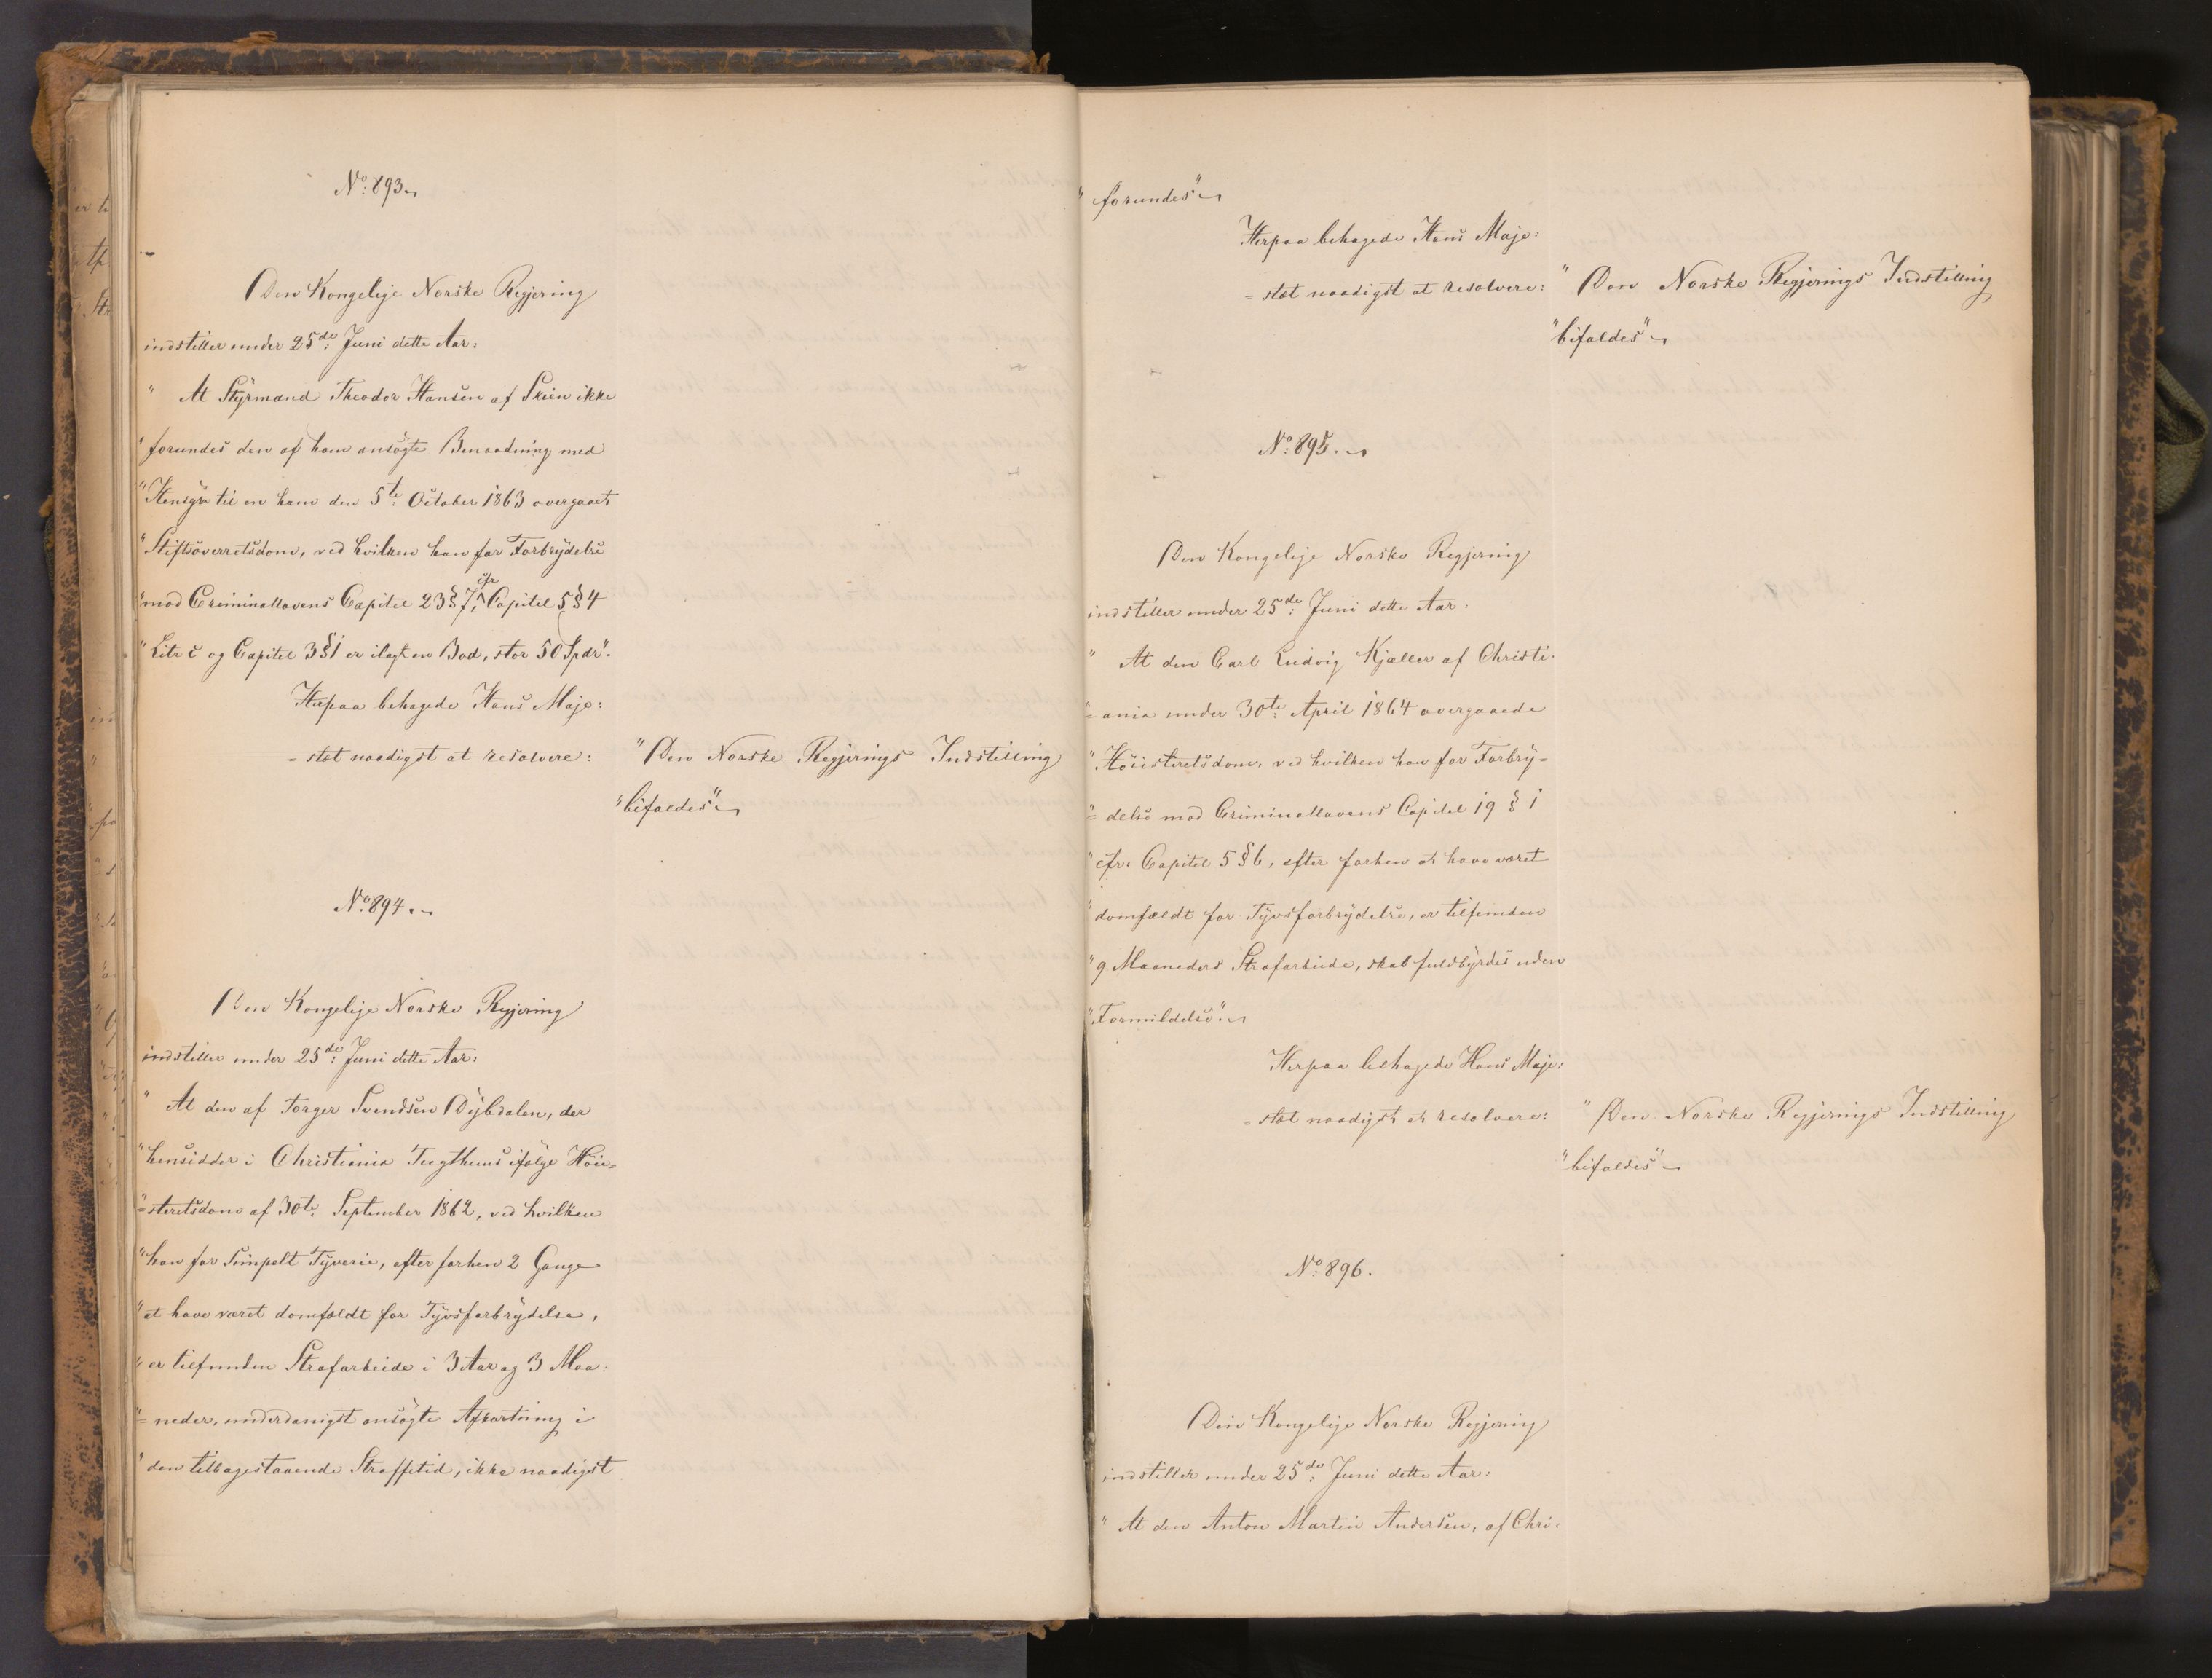 No: 893.
Den Kongelige Norske Regjering
indstiller under 25de: Juni dette Aar:
" At Styrmand Theodor Hansen af Skien ikke
" forundes den af ham ansøgte Benaadning med
" Hensyn til en ham den 5te: October 1863 overgaaet
" Stiftsoverretsdom, ved hvilken han for Forbrydelse
" mod Criminallovens Capitel 23 § 7, cfr Capitel 5 § 4
" Litr c og Capitel 3 § 1 er ilagt en Bod, stor 50 Spdr".
Herpaa behagede Hans Maje:
= stæt naadigst at resolvere: " Den Norske Regjerings Indstilling
" bifaldes"
No: 894.
Den Kongelige Norske Regjering
indstiller under 25de: Juni dette Aar:
" At den af Torger Svendsen Dybdalen, der
" hensidder i Christiania Tugthuus ifølge Høie=
"= steretsdom af 30te: September 1862, ved hvilken
" han for Simpelt Tyverie, efter forhen 2 Gange
" at have været domfældt for Tyvsforbrydelse,
" er tilfunden Strafarbeide i 3 Aar og 3 Maa:
"= neder, underdanigst ansøgte Afkortning i
" den tilbagestaaende Straffetid, ikke naadigst
" forundes"
Herpaa behagede Hans Maje:
= stæt naadigst at resolvere: " Den Norske Regjerings Indstilling
" bifaldes"
No: 895.
Den Kongelige Norske Regjering
indstiller under 25de: Juni dette Aar:
" At den Carl Ludvig Kjæller af Christi=
"= ania under 30te: April 1864 overgaaede
" Høiesteretsdom, ved hvilken han for Forbry=
"= delse mod Criminallovens Capitel 19 § 1
" cfr: Capitel 5 § 6, efter forhen at have været
" domfældt for Tyvsforbrydelse, er tilfunden
" 9 Maaneders Strafarbeide, skal fuldbyrdes uden
" Formildelse".
Herpaa behagede Hans Maje:
= stæt naadigst at resolvere: " Den Norske Regjerings Indstilling
" bifaldes"
No: 896.
Den Kongelige Norske Regjering
indstiller under 25de: Juni dette Aar:
" At den Anton Martin Andersen, af Chri=